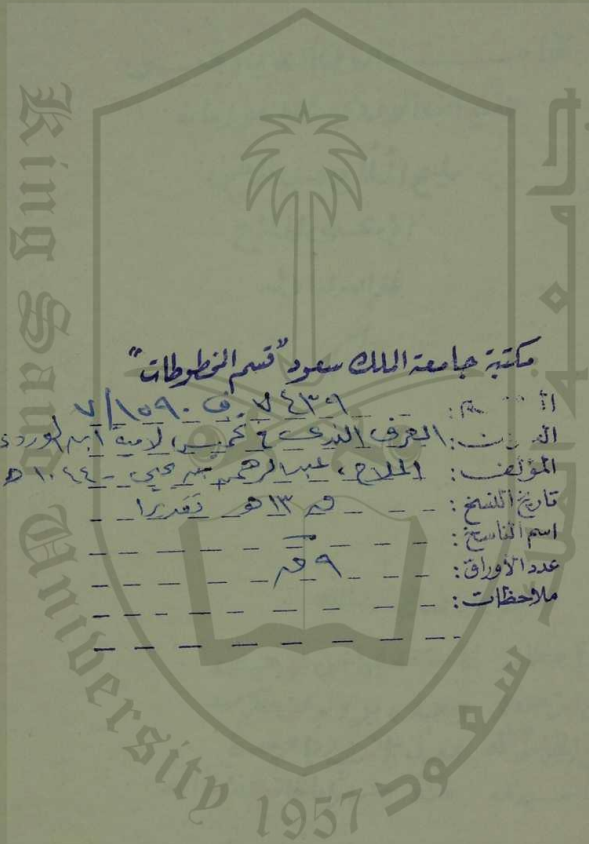 King Saud University 1957
جامعة الملك سعود
مكتبة جامعة الملك سعود "قسم المخطوطات"
الرقم: ٧٤٣٩ ف ١٥٩٠/٧
العنوان: العرف الندي في تخميس لامية ابن الوردي
المؤلف: الملاح، عبدالرحمن بن يحيى - ١٠٤٤ هـ
تاريخ النسخ: ق ١٣ هـ تقديرا
اسم الناسخ:
عدد الأوراق: ٩ ق
ملاحظات: